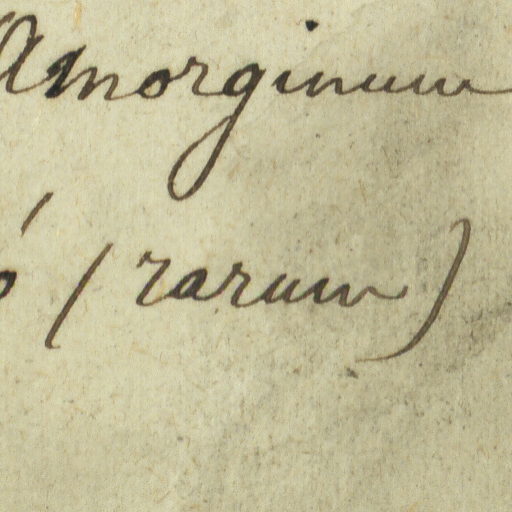 Amorginum
ó (rarum)